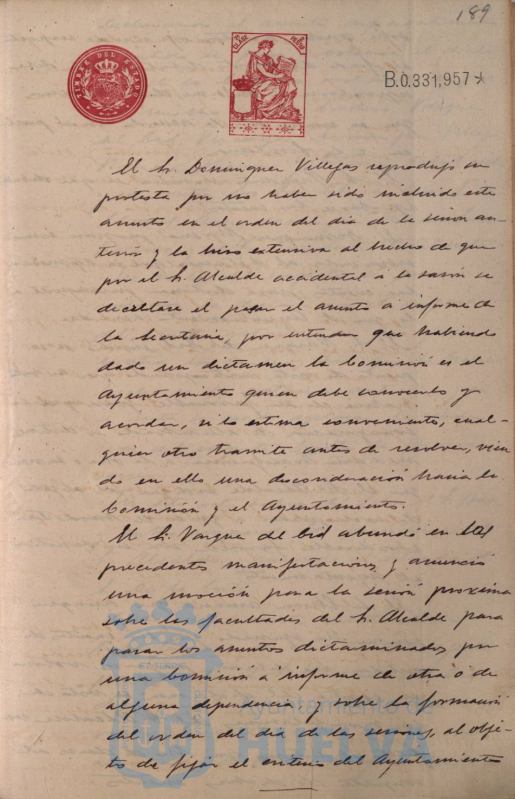 189
TIMBRE DEL ESTADO
CLASE
B.0.331,957*
El Sr. Dominguez Villegas reprodujo su
protesta por no haber sido incluido este
asunto en el orden del dia de la sesión an-
terior y la hizo extensiva al hecho de que
por el Sr. Alcalde accidental á la sazón se
decretase el pasar el asunto á informe de
la Secretaria, por entender que habiendo
dado un dictamen la Comisión es el
Ayuntamiento quien debe conocerlo y
acordar, si lo estima conveniente, cual-
quier otro tramite antes de resolver, vien-
do en ello una desconsideración hacia la
Comisión y el Ayuntamiento.
El Sr. Vazquez del Cid abundó en las
precedentes manifestaciones y anunció
una moción para la sesión proxima
sobre las facultades del Sr. Alcalde para
pasar los asuntos dictaminados por
una Comisión á informe de otra ó de
alguna dependencia, y sobre la formación
del orden del dia de las sesiones, al obje-
to de fijar el criterio del Ayuntamiento
Ayuntamiento de
HUELVA